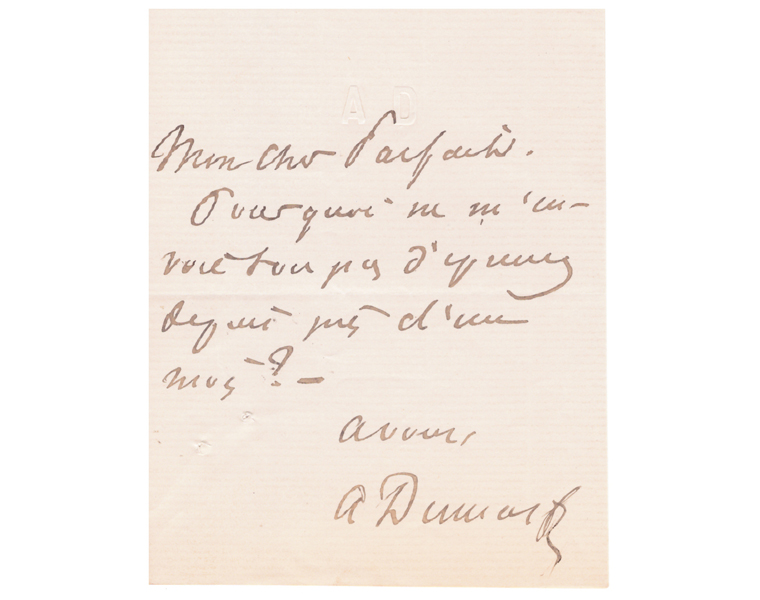 AD
Mon cher Parfait.
Pourquoi ne m'en-
voie t'on pas d'epreuves
depuis près d'un
mois ? –
a vous,
A Dumas f